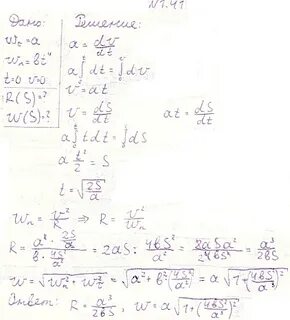 N1.41
Дано:
wτ = a
wn = bt⁴
t=0 v=0
R(S)=?
w(S)=?
Решение:
a = dv/dt
a∫dt = ∫dv
v = at
v = dS/dt at = dS/dt
a∫t dt = ∫dS
a t²/2 = S
t = √(2S/a)
wn = v²/R ⇒ R = v²/wn
R = (a² · 2S/a)/(b · 4S²/a²) = 2aS : 4bS²/a² = 2aSa²/4bS² = a³/2bS
w = √(wn² + wτ²) = √(a² + b²(4S²/a²)²) = a√(1+(4bS²/a³)²)
Ответ: R = a³/2bS, w = a√(1+(4bS²/a³)²)